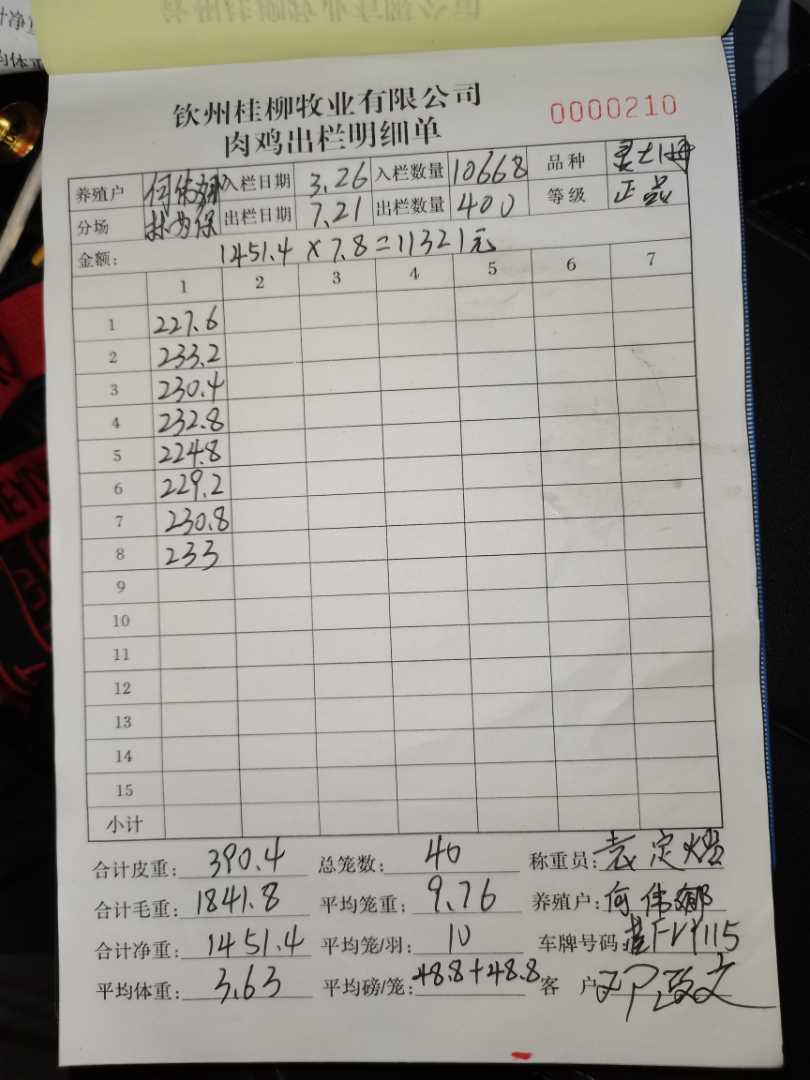 钦州桂柳牧业有限公司
肉鸡出栏明细单
0000210
养殖户 何伟 入栏日期 3.26 入栏数量 10668 品种
分场 林为保 出栏日期 7.21 出栏数量 400 等级 正品
金额: 1451.4 × 7.8 = 11321元
1 2 3 4 5 6 7
1 227.6
2 233.2
3 230.4
4 232.8
5 224.8
6 229.2
7 230.8
8 233
9
10
11
12
13
14
15
小计
合计皮重: 390.4 总笼数: 40 称重员: 袁定
合计毛重: 1841.8 平均笼重: 9.76 养殖户: 何伟
合计净重: 1451.4 平均笼/羽: 10 车牌号码:
平均体重: 3.63 平均磅/笼: 48.8+48.8 客 户 邓政文